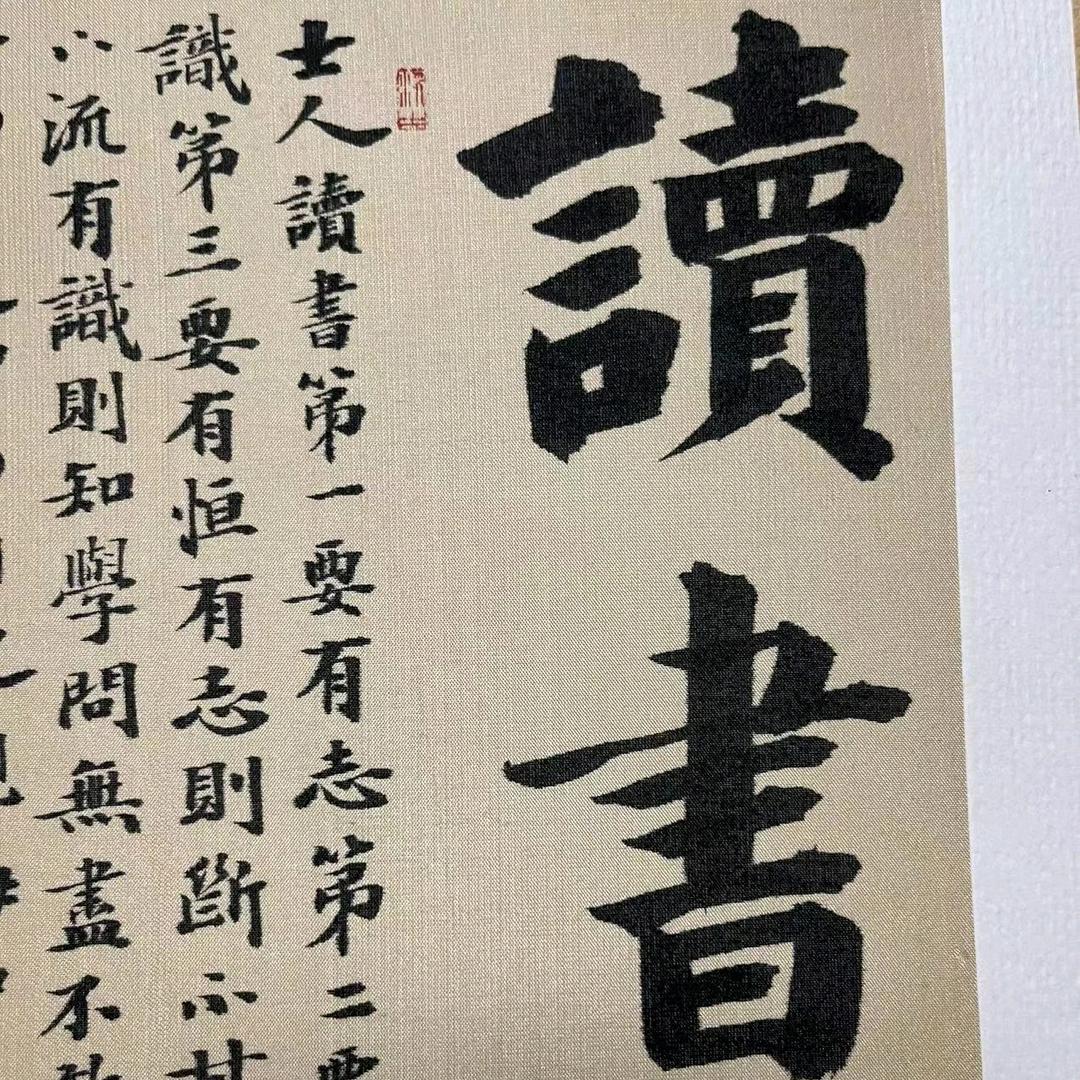 讀書
士人讀書第一要有志第二要
識第三要有恒有志則斷不甘
下流有識則知學問無盡不